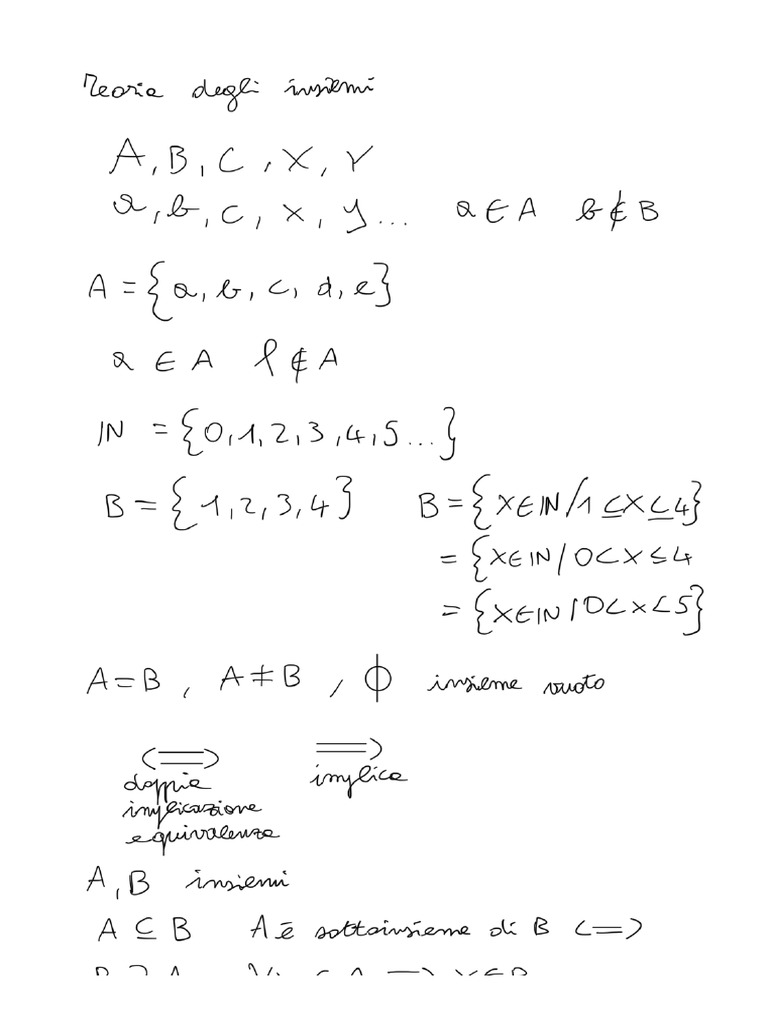 Teoria degli insiemi
A, B, C, X, Y
a, b, c, x, y... a ∈ A b ∉ B
A = {a, b, c, d, e}
a ∈ A l ∉ A
IN = {0, 1, 2, 3, 4, 5...}
B = {1, 2, 3, 4} B = {X ∈ IN / 1 ≤ X ≤ 4}
= {X ∈ IN / 0 < X ≤ 4
= {X ∈ IN / 0 < X < 5}
A = B, A ≠ B, ϕ insieme vuoto
<=> =>
doppia implica
implicazione
equivalenza
A, B insiemi
A ⊆ B A è sottoinsieme di B <=>